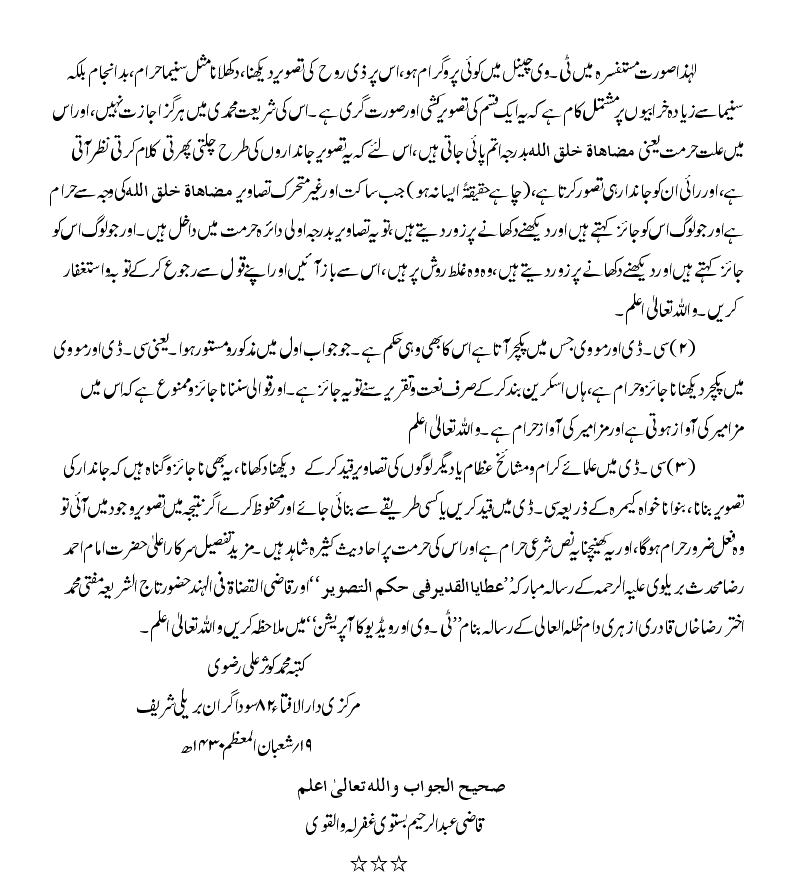 لہٰذا صورت مستفسرہ میں ٹی۔وی چینل میں کوئی پروگرام ہو، اس پر ذی روح کی تصویر دیکھنا، دکھلانا مثل سنیما حرام، بد انجام بلکہ
سنیما سے زیادہ خرابیوں پر مشتمل کام ہے کہ یہ ایک قسم کی تصویر کشی اور صورت گری ہے۔ اس کی شریعت محمدی میں ہرگز اجازت نہیں، اور اس
میں علت حرمت یعنی مضاهاۃ خلق الله بدرجہ اتم پائی جاتی ہیں، اس لئے کہ یہ تصویر جانداروں کی طرح چلتی پھرتی کلام کرتی نظر آتی
ہے، اور رائی ان کو جاندار ہی تصور کرتا ہے، (چاہے حقیقۃً ایسا نہ ہو) جب ساکت اور غیر متحرک تصاویر مضاهاۃ خلق الله کی وجہ سے حرام
ہے اور جو لوگ اس کو جائز کہتے ہیں اور دیکھنے دکھانے پر زور دیتے ہیں، تو یہ تصاویر بدرجہ اولی دائرہ حرمت میں داخل ہیں۔ اور جو لوگ اس کو
جائز کہتے ہیں اور دیکھنے دکھانے پر زور دیتے ہیں، وہ وہ غلط روش پر ہیں، اس سے باز آئیں اور اپنے قول سے رجوع کر کے توبہ واستغفار
کریں۔ واللہ تعالیٰ اعلم۔
(۲) سی۔ڈی اور مووی جس میں پکچر آتا ہے اس کا بھی وہی حکم ہے۔ جو جواب اول میں مذکور و مستور ہوا۔ یعنی سی۔ڈی اور مووی
میں پکچر دیکھنا ناجائز و حرام ہے، ہاں اسکرین بند کر کے صرف نعت و تقریر سنے تو یہ جائز ہے۔ اور قوالی سننا ناجائز و ممنوع ہے کہ اس میں
مزامیر کی آواز ہوتی ہے اور مزامیر کی آواز حرام ہے۔ واللہ تعالیٰ اعلم
(۳) سی۔ڈی میں علمائے کرام و مشائخ عظام یا دیگر لوگوں کی تصاویر قید کر کے دیکھنا دکھانا، یہ بھی ناجائز و گناہ ہیں کہ جاندار کی
تصویر بنانا، بنوانا خواہ کیمرہ کے ذریعہ سی۔ڈی میں قید کریں یا کسی طریقے سے بنائی جائے اور محفوظ کرے اگر نتیجہ میں تصویر وجود میں آئی تو
وہ فعل ضرور حرام ہوگا، اور یہ کھینچنا بہ نص شرعی حرام ہے اور اس کی حرمت پر احادیث کثیرہ شاہد ہیں۔ مزید تفصیل سرکار اعلیٰ حضرت امام احمد
رضا محدث بریلوی علیہ الرحمہ کے رسالہ مبارکہ ”عطایا القدیر فی حکم التصویر“ اور قاضی القضاۃ فی الہند حضور تاج الشریعہ مفتی محمد
اختر رضا خاں قادری ازہری دام ظلہ العالی کے رسالہ بنام ”ٹی۔وی اور ویڈیو کا آپریشن“ میں ملاحظہ کریں واللہ تعالیٰ اعلم۔
کتبہ محمد کوثر علی رضوی
مرکزی دارالافتاء ۸۲ سوداگران بریلی شریف
۱۹؍شعبان المعظم ۱۴۳۰ھ
صحیح الجواب واللہ تعالیٰ اعلم
قاضی عبدالرحیم بستوی غفرلہ والقوی
☆☆☆